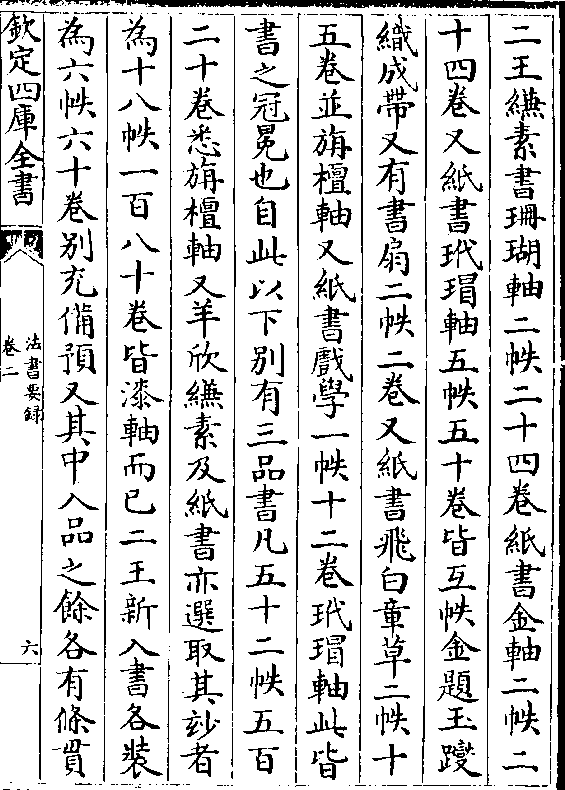 二王縑素書珊瑚軸二帙二十四卷紙書金軸二帙二
十四卷又紙書玳瑁軸五帙五十卷皆互帙金題玉躞
織成帶又有書扇二帙二卷又紙書飛白章草二帙十
五卷並旃檀軸又紙書戲學一帙十二卷玳瑁軸此皆
書之冠冕也自此以下别有三品書凡五十二帙五百
二十卷悉旃檀軸又羊欣縑素及紙書亦選取其玅者
為十八帙一百八十卷皆漆軸而已二王新入書各裝
為六帙六十卷别充備預又其中入品之餘各有條貫
欽定四庫全書
法書要録
卷二
六